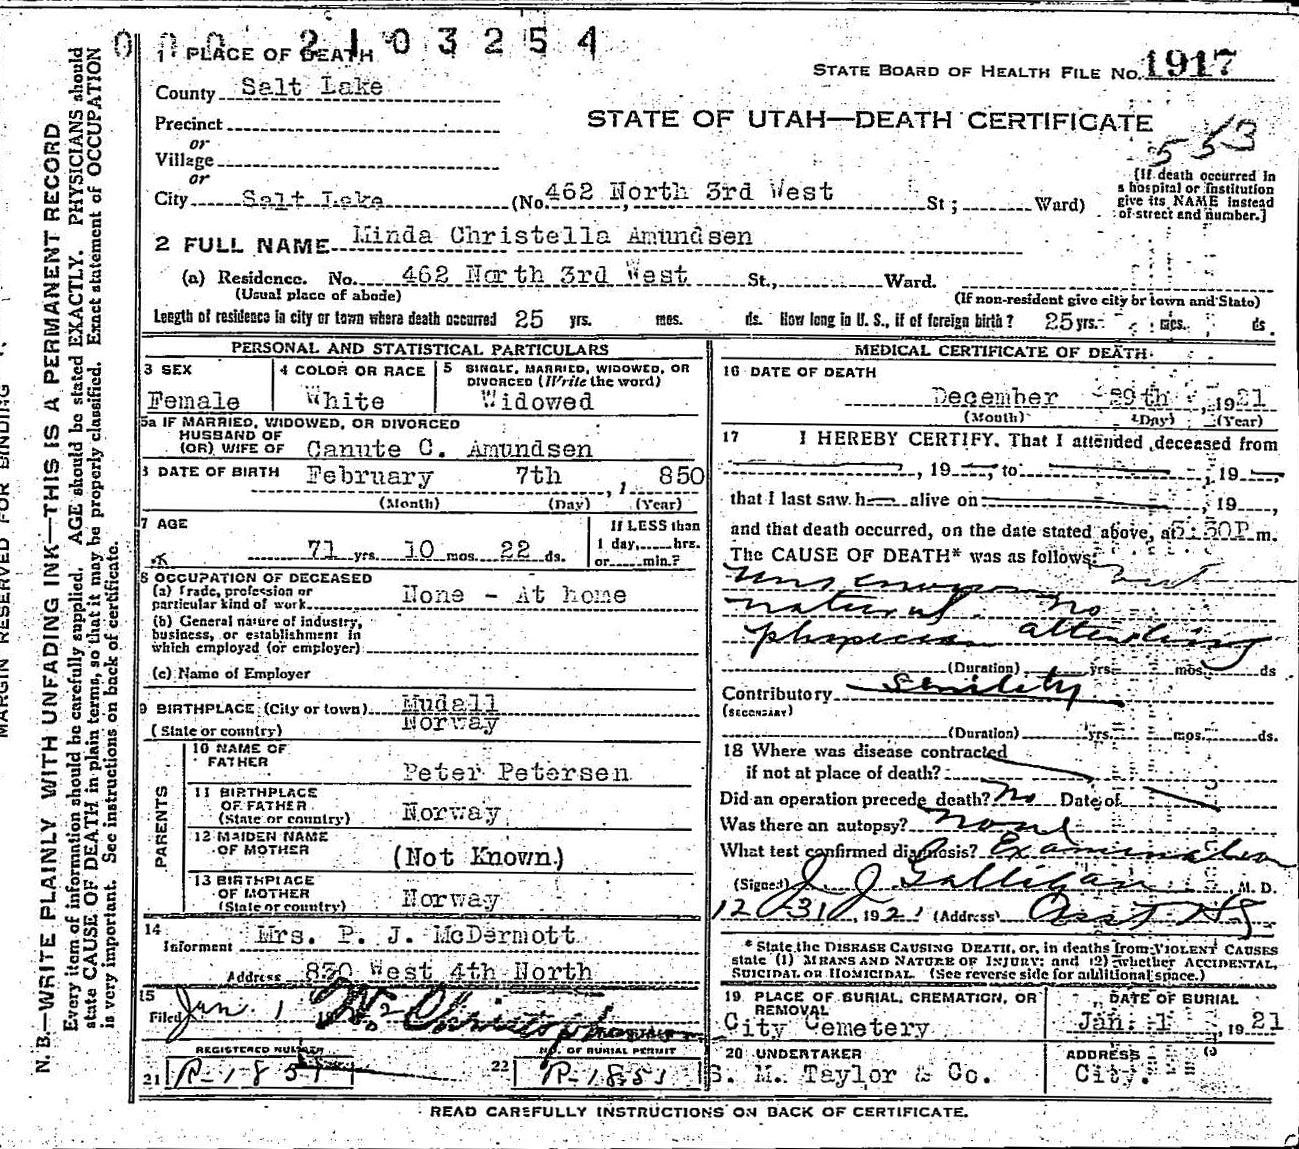 0 0 0 2 1 0 3 2 5 4
1 PLACE OF DEATH
STATE BOARD OF HEALTH FILE NO. 1917
County Salt Lake
STATE OF UTAH—DEATH CERTIFICATE
553
Precinct
or
Village
or
City Salt Lake (No. 462 North 3rd West St; Ward)
[If death occurred in
a hospital or institution
give its NAME instead
of street and number.]
2 FULL NAME Minda Christella Amundsen
(a) Residence. No. 462 North 3rd West St., Ward.
(Usual place of abode) (If non-resident give city or town and State)
Length of residence in city or town where death occurred 25 yrs. mos. ds. How long in U. S., if of foreign birth? 25 yrs. mos. ds.
PERSONAL AND STATISTICAL PARTICULARS
3 SEX
Female
4 COLOR OR RACE
White
5 SINGLE, MARRIED, WIDOWED, OR
DIVORCED (Write the word)
Widowed
5a IF MARRIED, WIDOWED, OR DIVORCED
HUSBAND OF
(OR) WIFE OF Canute C. Amundsen
6 DATE OF BIRTH February 7th, 1850
(Month) (Day) (Year)
7 AGE
71 yrs. 10 mos. 22 ds.
If LESS than
1 day, hrs.
or min.?
8 OCCUPATION OF DECEASED
(a) Trade, profession or
particular kind of work None - At home
(b) General nature of industry,
business, or establishment in
which employed (or employer)
(c) Name of Employer
9 BIRTHPLACE (City or town) Mudall
(State or country) Norway
PARENTS
10 NAME OF
FATHER Peter Petersen
11 BIRTHPLACE
OF FATHER
(State or country) Norway
12 MAIDEN NAME
OF MOTHER (Not Known.)
13 BIRTHPLACE
OF MOTHER
(State or country) Norway
14
Informent Mrs. P. J. McDermott
Address 830 West 4th North
15
Filed Jan. 1
REGISTERED NUMBER
21 R-1851
NO. OF BURIAL PERMIT
22 R-1851
MEDICAL CERTIFICATE OF DEATH
16 DATE OF DEATH
December 29th, 1921
(Month) (Day) (Year)
17 I HEREBY CERTIFY, That I attended deceased from
, 19 , to , 19
that I last saw h alive on , 19 ,
and that death occurred, on the date stated above, at 5:30P.m.
The CAUSE OF DEATH* was as follows:
unknown but
natural. No
physician attending
(Duration) yrs. mos. ds
Contributory senility
(SECONDARY)
(Duration) yrs. mos. ds.
18 Where was disease contracted
if not at place of death?
Did an operation precede death? No Date of
Was there an autopsy? none
What test confirmed diagnosis? Examination
(Signed) J J Galligan M. D.
12-31, 1921 (Address)
* State the DISEASE CAUSING DEATH, or, in deaths from VIOLENT CAUSES
state (1) MEANS AND NATURE OF INJURY; and (2) whether ACCIDENTAL,
SUICIDAL OR HOMICIDAL. (See reverse side for additional space.)
19 PLACE OF BURIAL, CREMATION, OR
REMOVAL
City Cemetery
DATE OF BURIAL
Jan. 1, 1921
20 UNDERTAKER
S. M. Taylor & Co.
ADDRESS
City.
READ CAREFULLY INSTRUCTIONS ON BACK OF CERTIFICATE.
MARGIN RESERVED FOR BINDING
N. B.—WRITE PLAINLY WITH UNFADING INK—THIS IS A PERMANENT RECORD
Every item of information should be carefully supplied. AGE should be stated EXACTLY. PHYSICIANS should
state CAUSE OF DEATH in plain terms, so that it may be properly classified. Exact statement of OCCUPATION
is very important. See instructions on back of certificate.